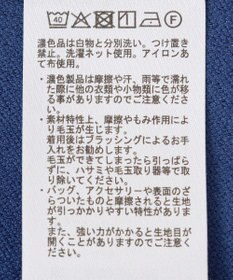 40
F
濃色品は白物と分別洗い。つけ置き
禁止。洗濯ネット使用。アイロンあ
て布使用。
・濃色製品は摩擦や汗、雨等で濡れ
た際に他の衣類や小物類に色が移
る事がありますのでご注意くださ
い。
・素材特性上、摩擦やもみ作用によ
り毛玉が生じます。
着用後はブラッシングによるお手
入れをお勧めします。
毛玉ができてしまったら引っぱら
ずに、ハサミや毛玉取り器等で取
り除いてください。
・バッグ、アクセサリーや表面のざ
らついたものと摩擦されると生地
が引っかかりやすい特性がありま
す。
また、強い力がかかると生地目が
開くことがありますのでご注意く
ださい。